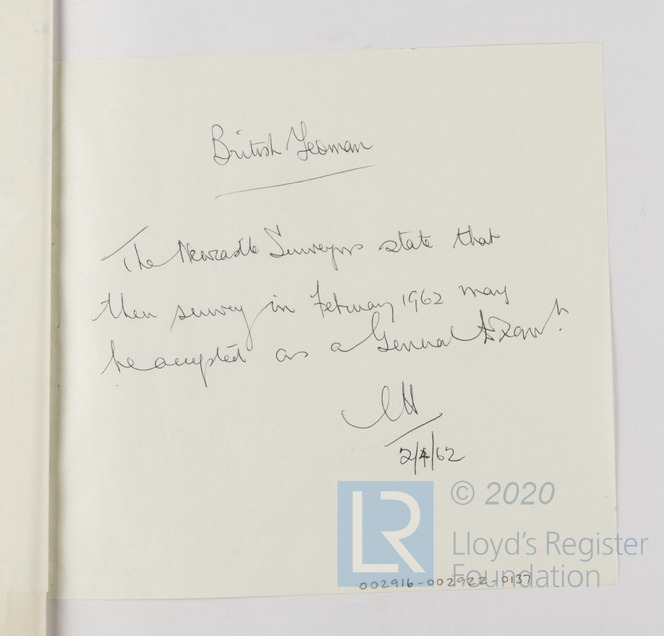 British Yeoman
The Newcastle Surveyors state that
their survey in February 1962 may
be accepted as a General Exam!n
LH
2/4/62
LR
© 2020
Lloyd's Register
Foundation
002916-002922-0137